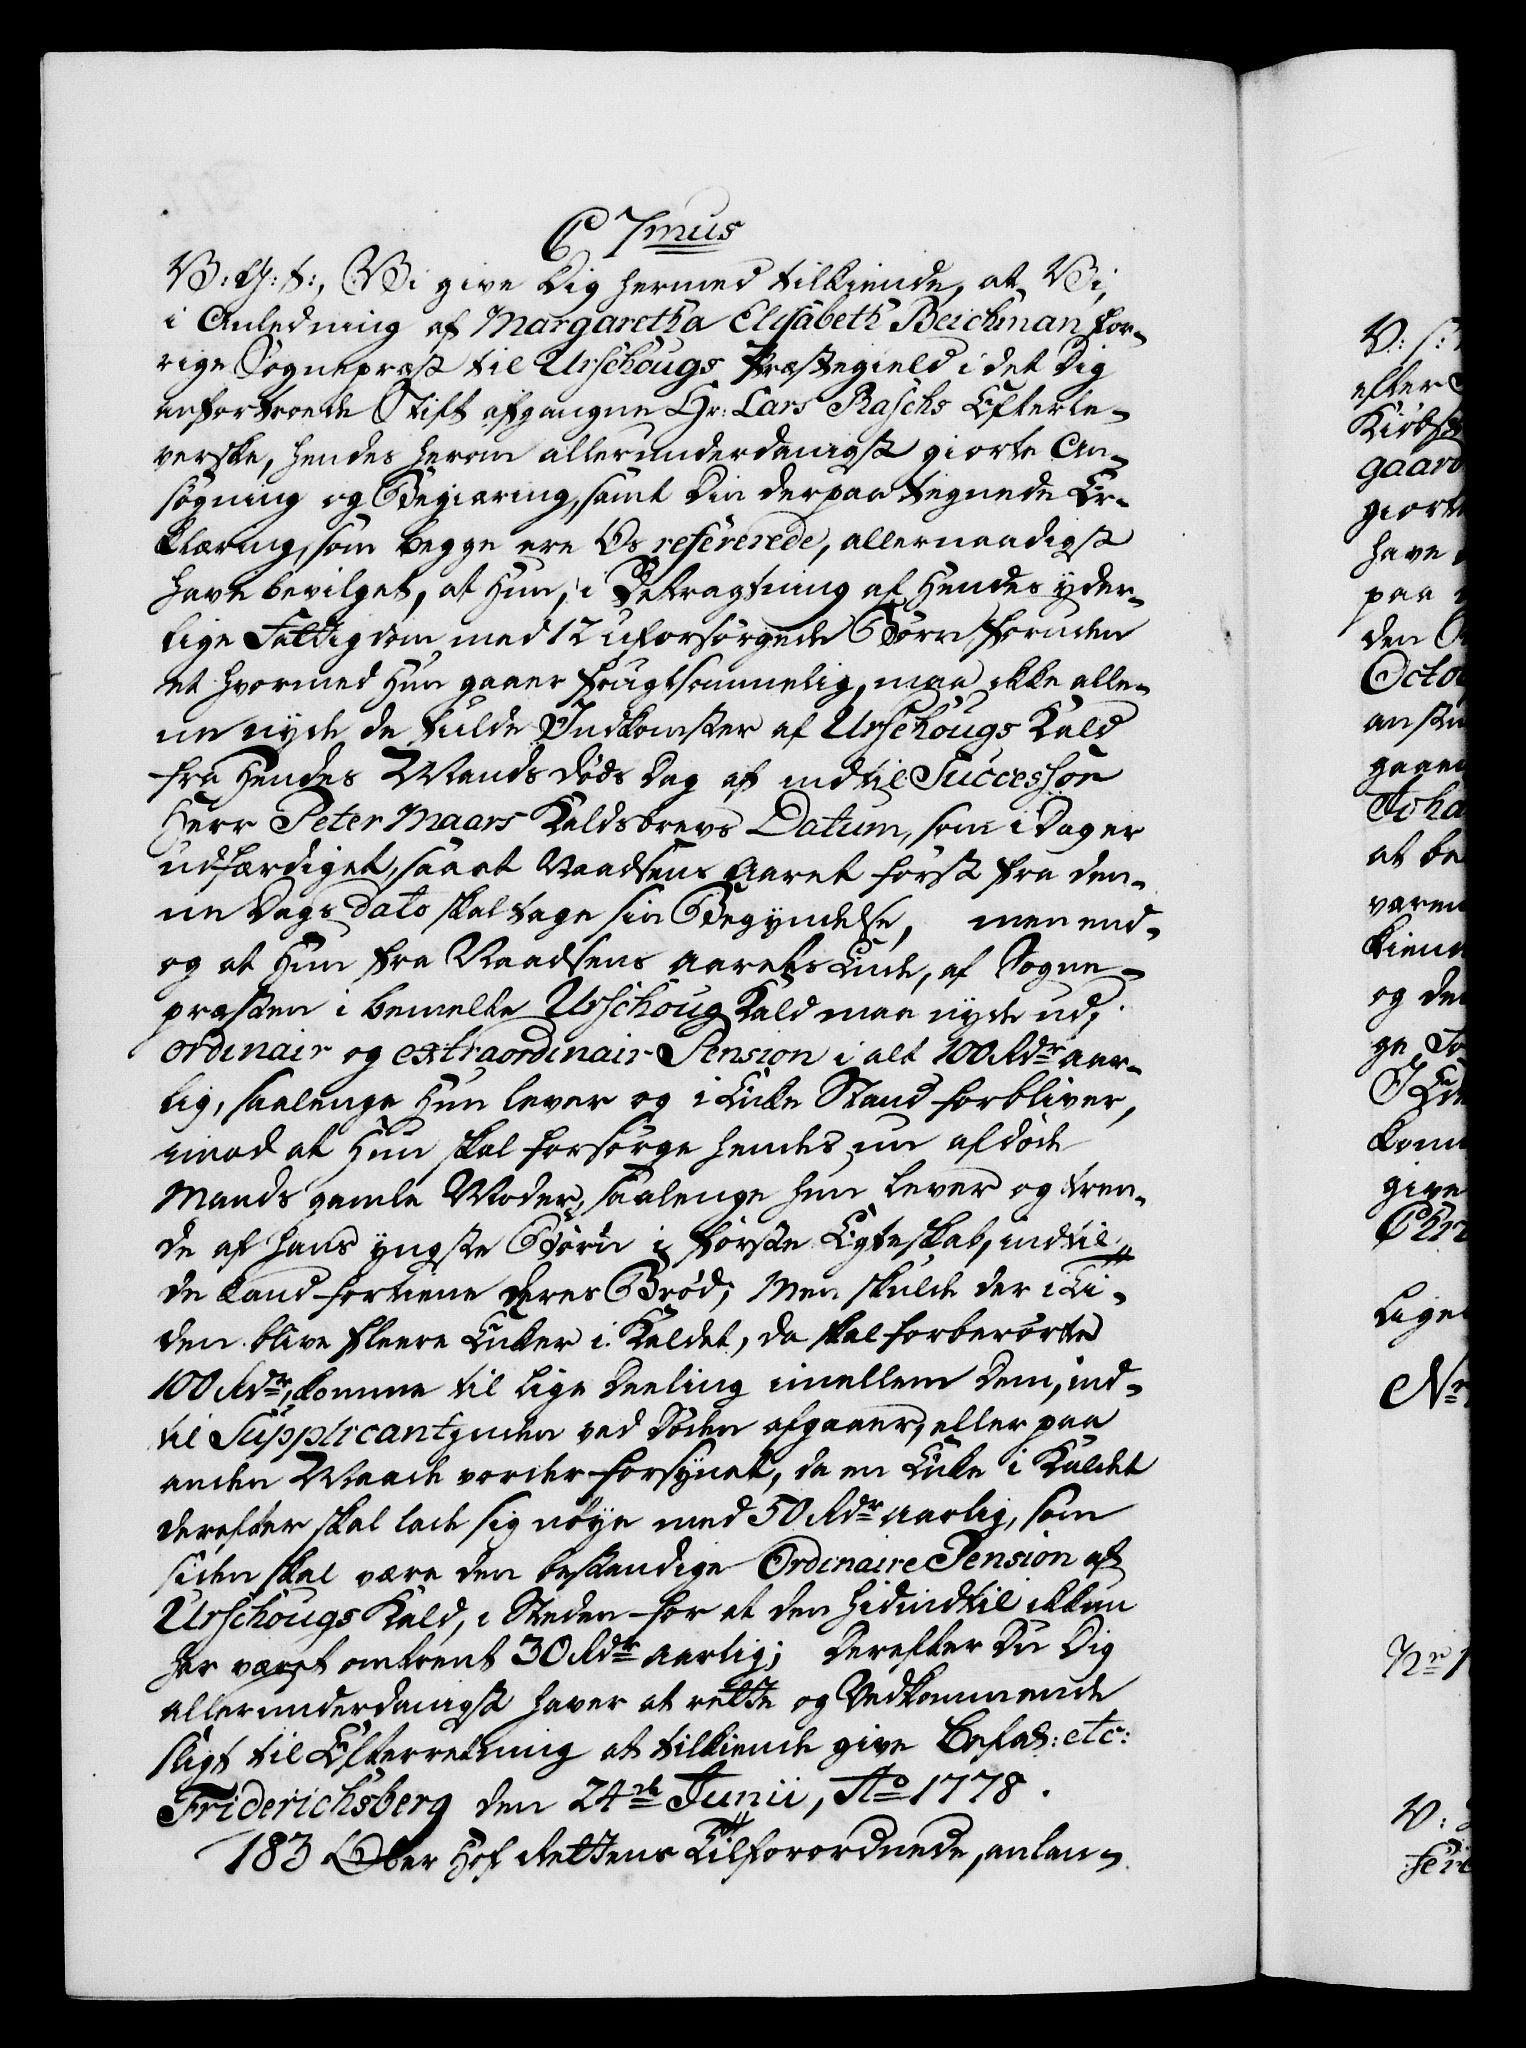 C 7mus
V: G: t:, Vi give Dig hermed tilkiende, at Vi,
i Anledning af Margaretha Elisabeth Beichman for-
rige Sognepræst til Urschougs Præstegield i det Dig
anfortroede Stift afgangne Hr: Lars Raschs Efterle-
verske, hendes herom allerunderdanigst giorte An-
søgning og Begiæring, samt Din derpaa tegnede Er-
klæring, som begge ere Os refererede, allernaadigst
have bevilget, at Hun, i Betragtning af Hendes yder-
lige Fattigdom med 12 uforsørgede Børn foruden
et hvormed Hun gaaer frugtsommelig, maa ikke alle-
ne nyde de fulde Indkomster af Urschougs Kald
fra Hendes Mands døds Dag af indtil Successor
Herr Peter Maars Kaldsbrevs Datum, som i Dag er
udfærdiget, saa at Naadsens Aaret først fra den-
ne Dags Dato skal tage sin Begyndelse, men end-
og at Hun fra Naadsens Aarets Ende, af Sogne-
præsten i bemelte Urschoug Kald maa nyde ud,
ordinair og extraordinair Pension i alt 100 Rdr aar-
lig, saalenge Hun lever og i Enke Stand forbliver,
imod at Hun skal forsørge hendes nu afdøde
Mands gamle Moder, saalenge hun lever og tren-
de af hans yngste Børn i første Egteskab, indtil
de kand fortiene deres Brød; Men skulde der i Ti-
den blive fleere Enker i Kaldet, da skal forberørte
100 Rdr, komme til lige Deeling imellem Dem, ind-
til Supplicantinden ved Døden afgaaer, eller paa
anden Maade vorder forsynet, da en Enke i Kaldet
derefter skal lade sig nøye med 50 Rdr aarlig, som
siden skal være den bestandige Ordinaire Pension af
Urschougs Kald, i Steden for at den hidindtil ikkun
har været omtrent 30 Rdr aarlig; Derefter Du Dig
allerunderdanigst haver at rette og Vedkommende
sligt til Efterretning at tilkiende give Befal: etc:
Friderichsberg den 24de Junii, Ao 1778.
183 Ober Hof Rettens Tilforordnede, anlan-
V: s:
efter
Kiøbst
gaard
giorte
have
paa
den
Octo
gaae
Joha
at be
varen
kiend
og de
ge
Kom
give
Chri
Lige
Nr
Nr 1
V: